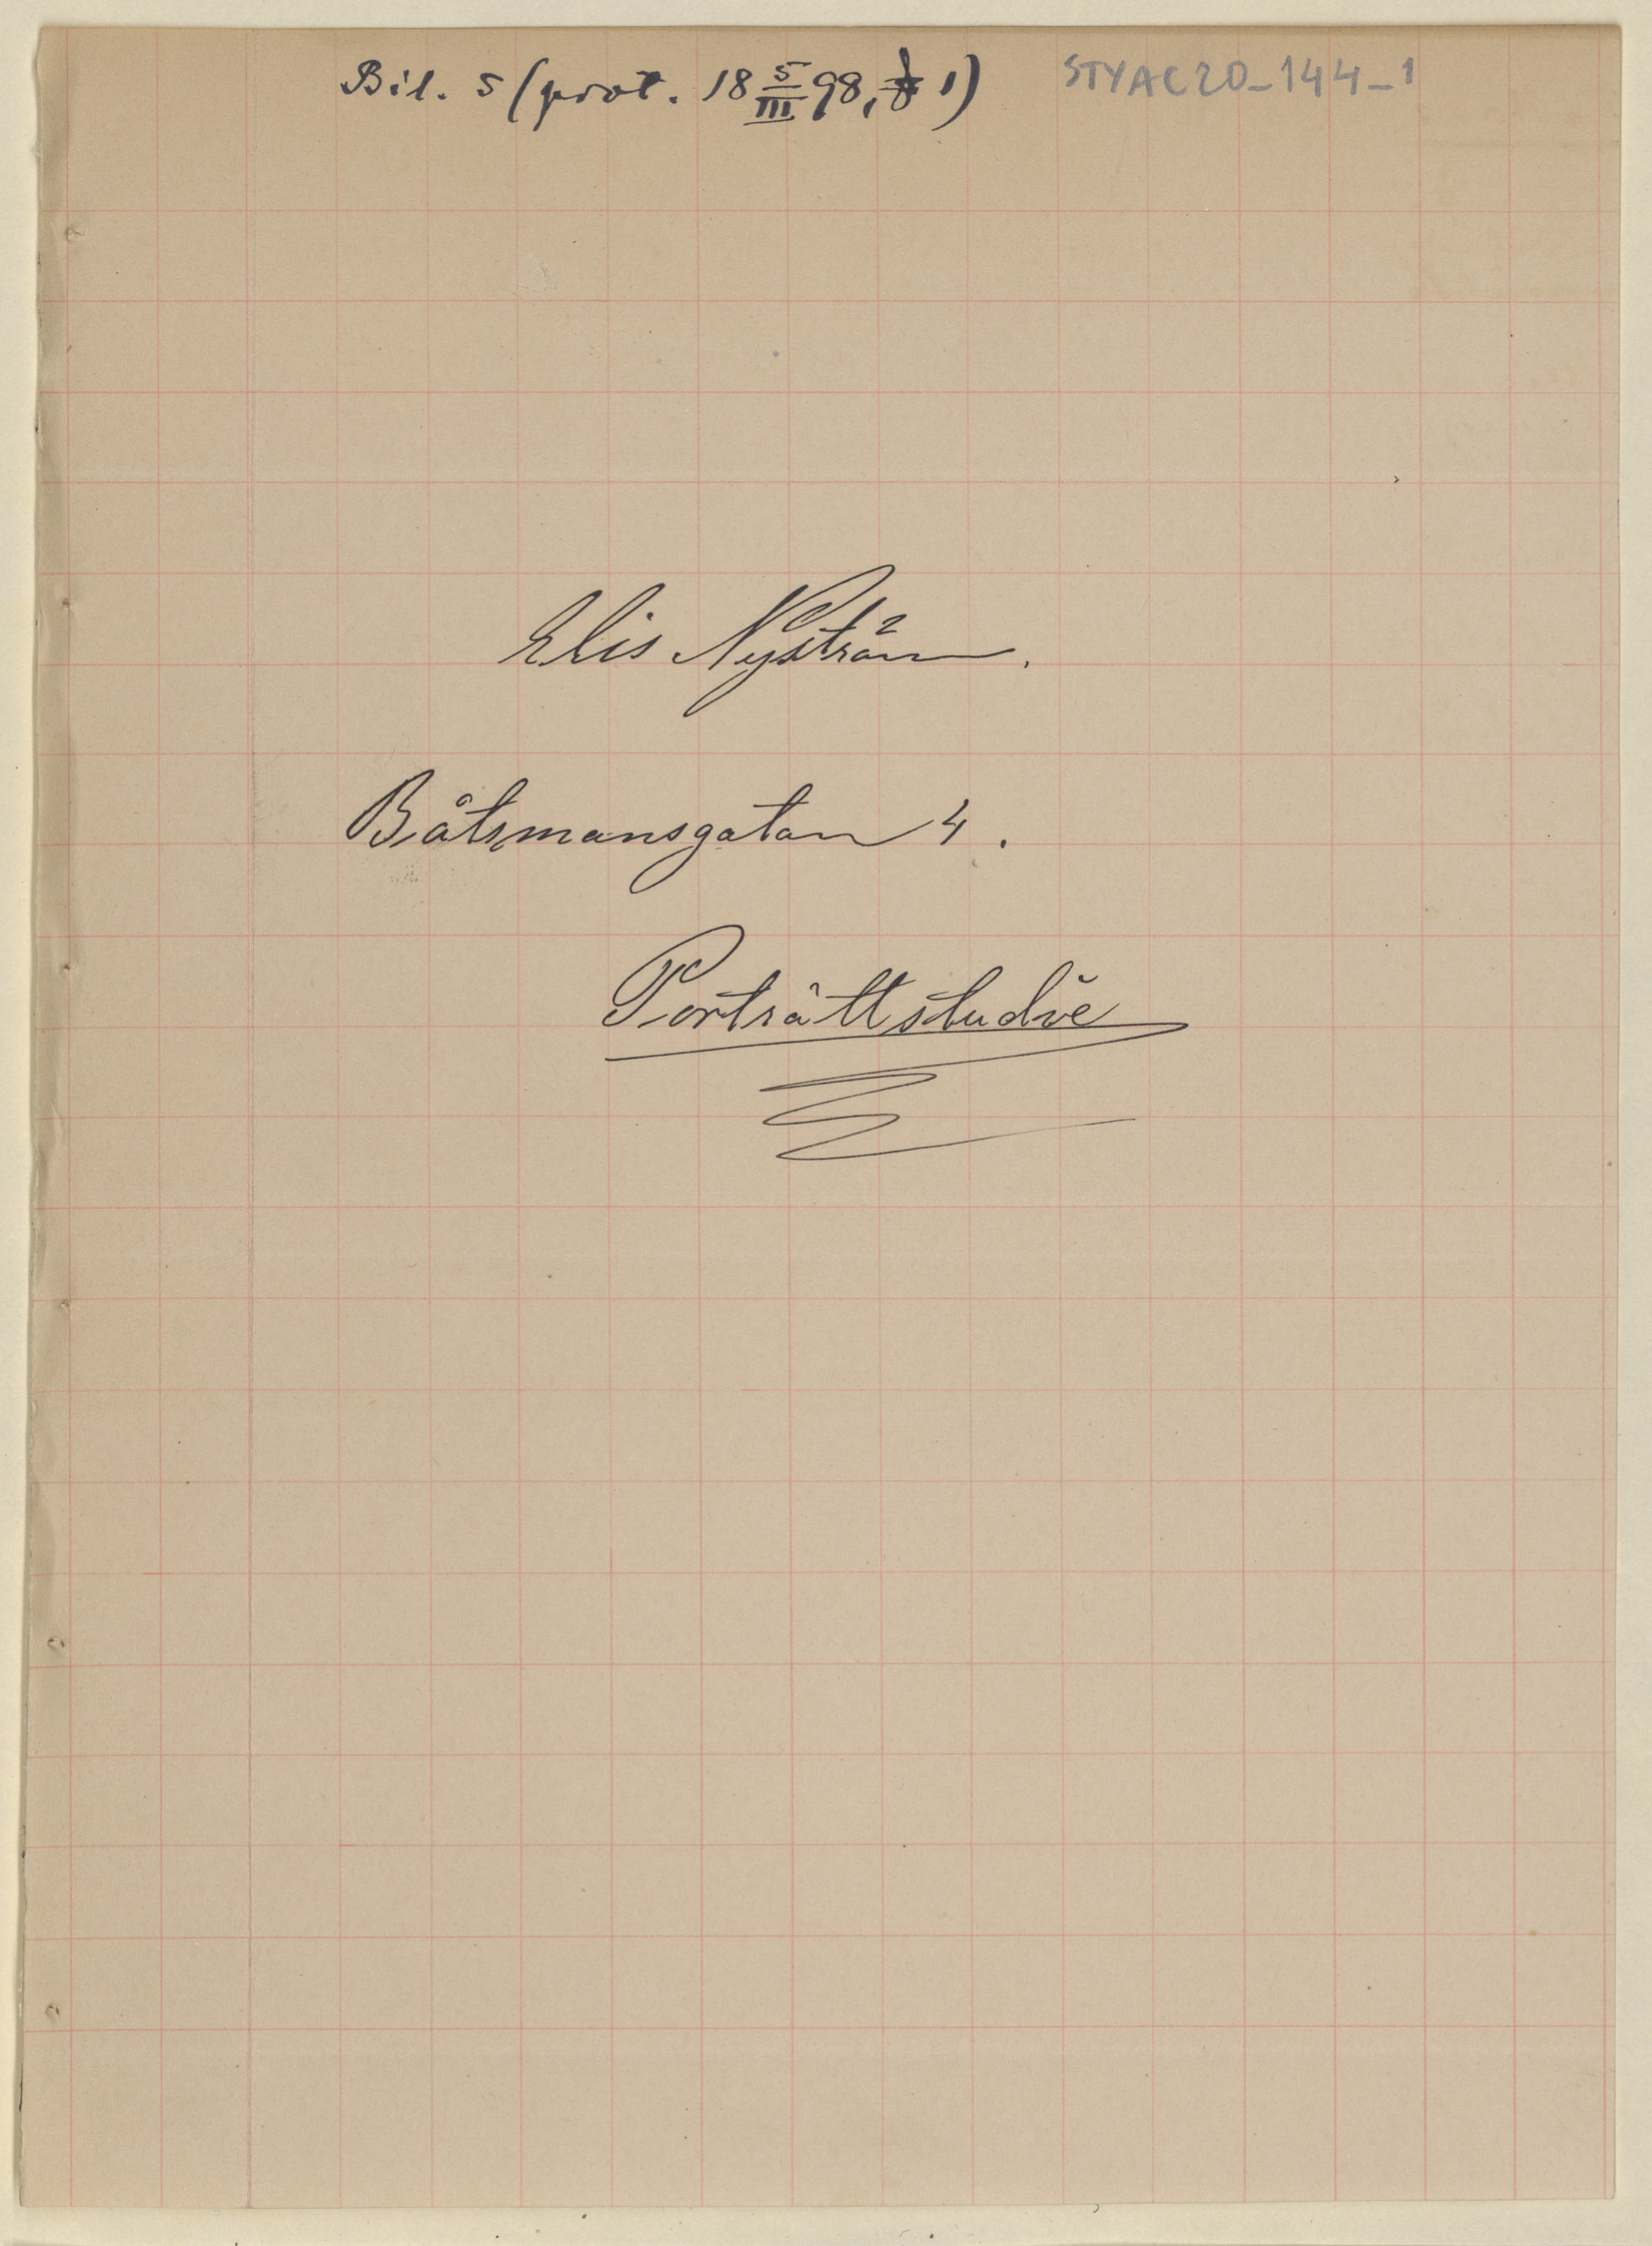 Bil. 5 (prot. 18 5/III 98, § 1) STYAC20_144_1
Elis Nyström.
Båtsmansgatan 4.
Porträttstudie